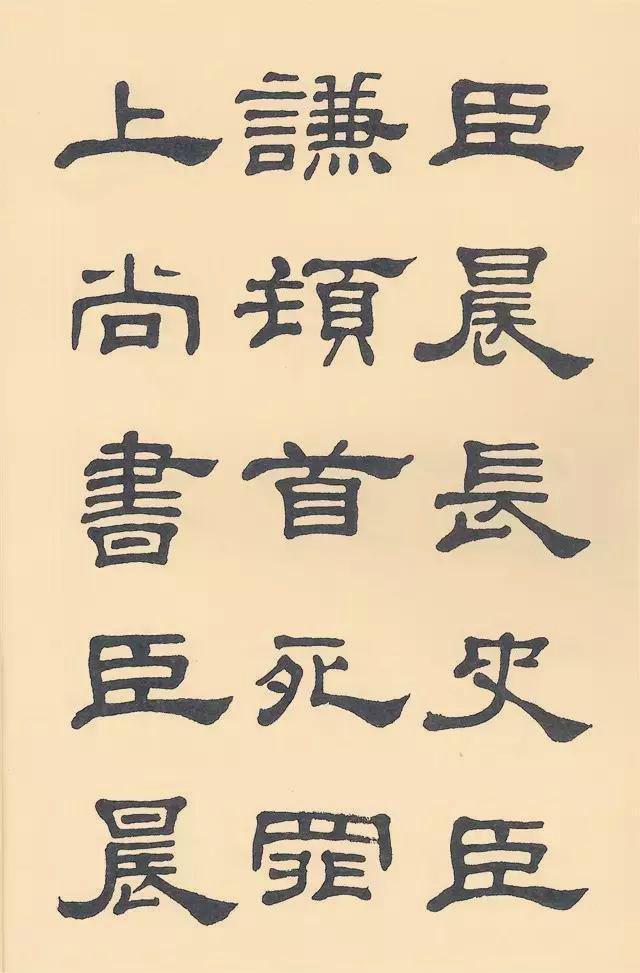 臣晨長史臣
謙頓首死罪
上尚書臣晨